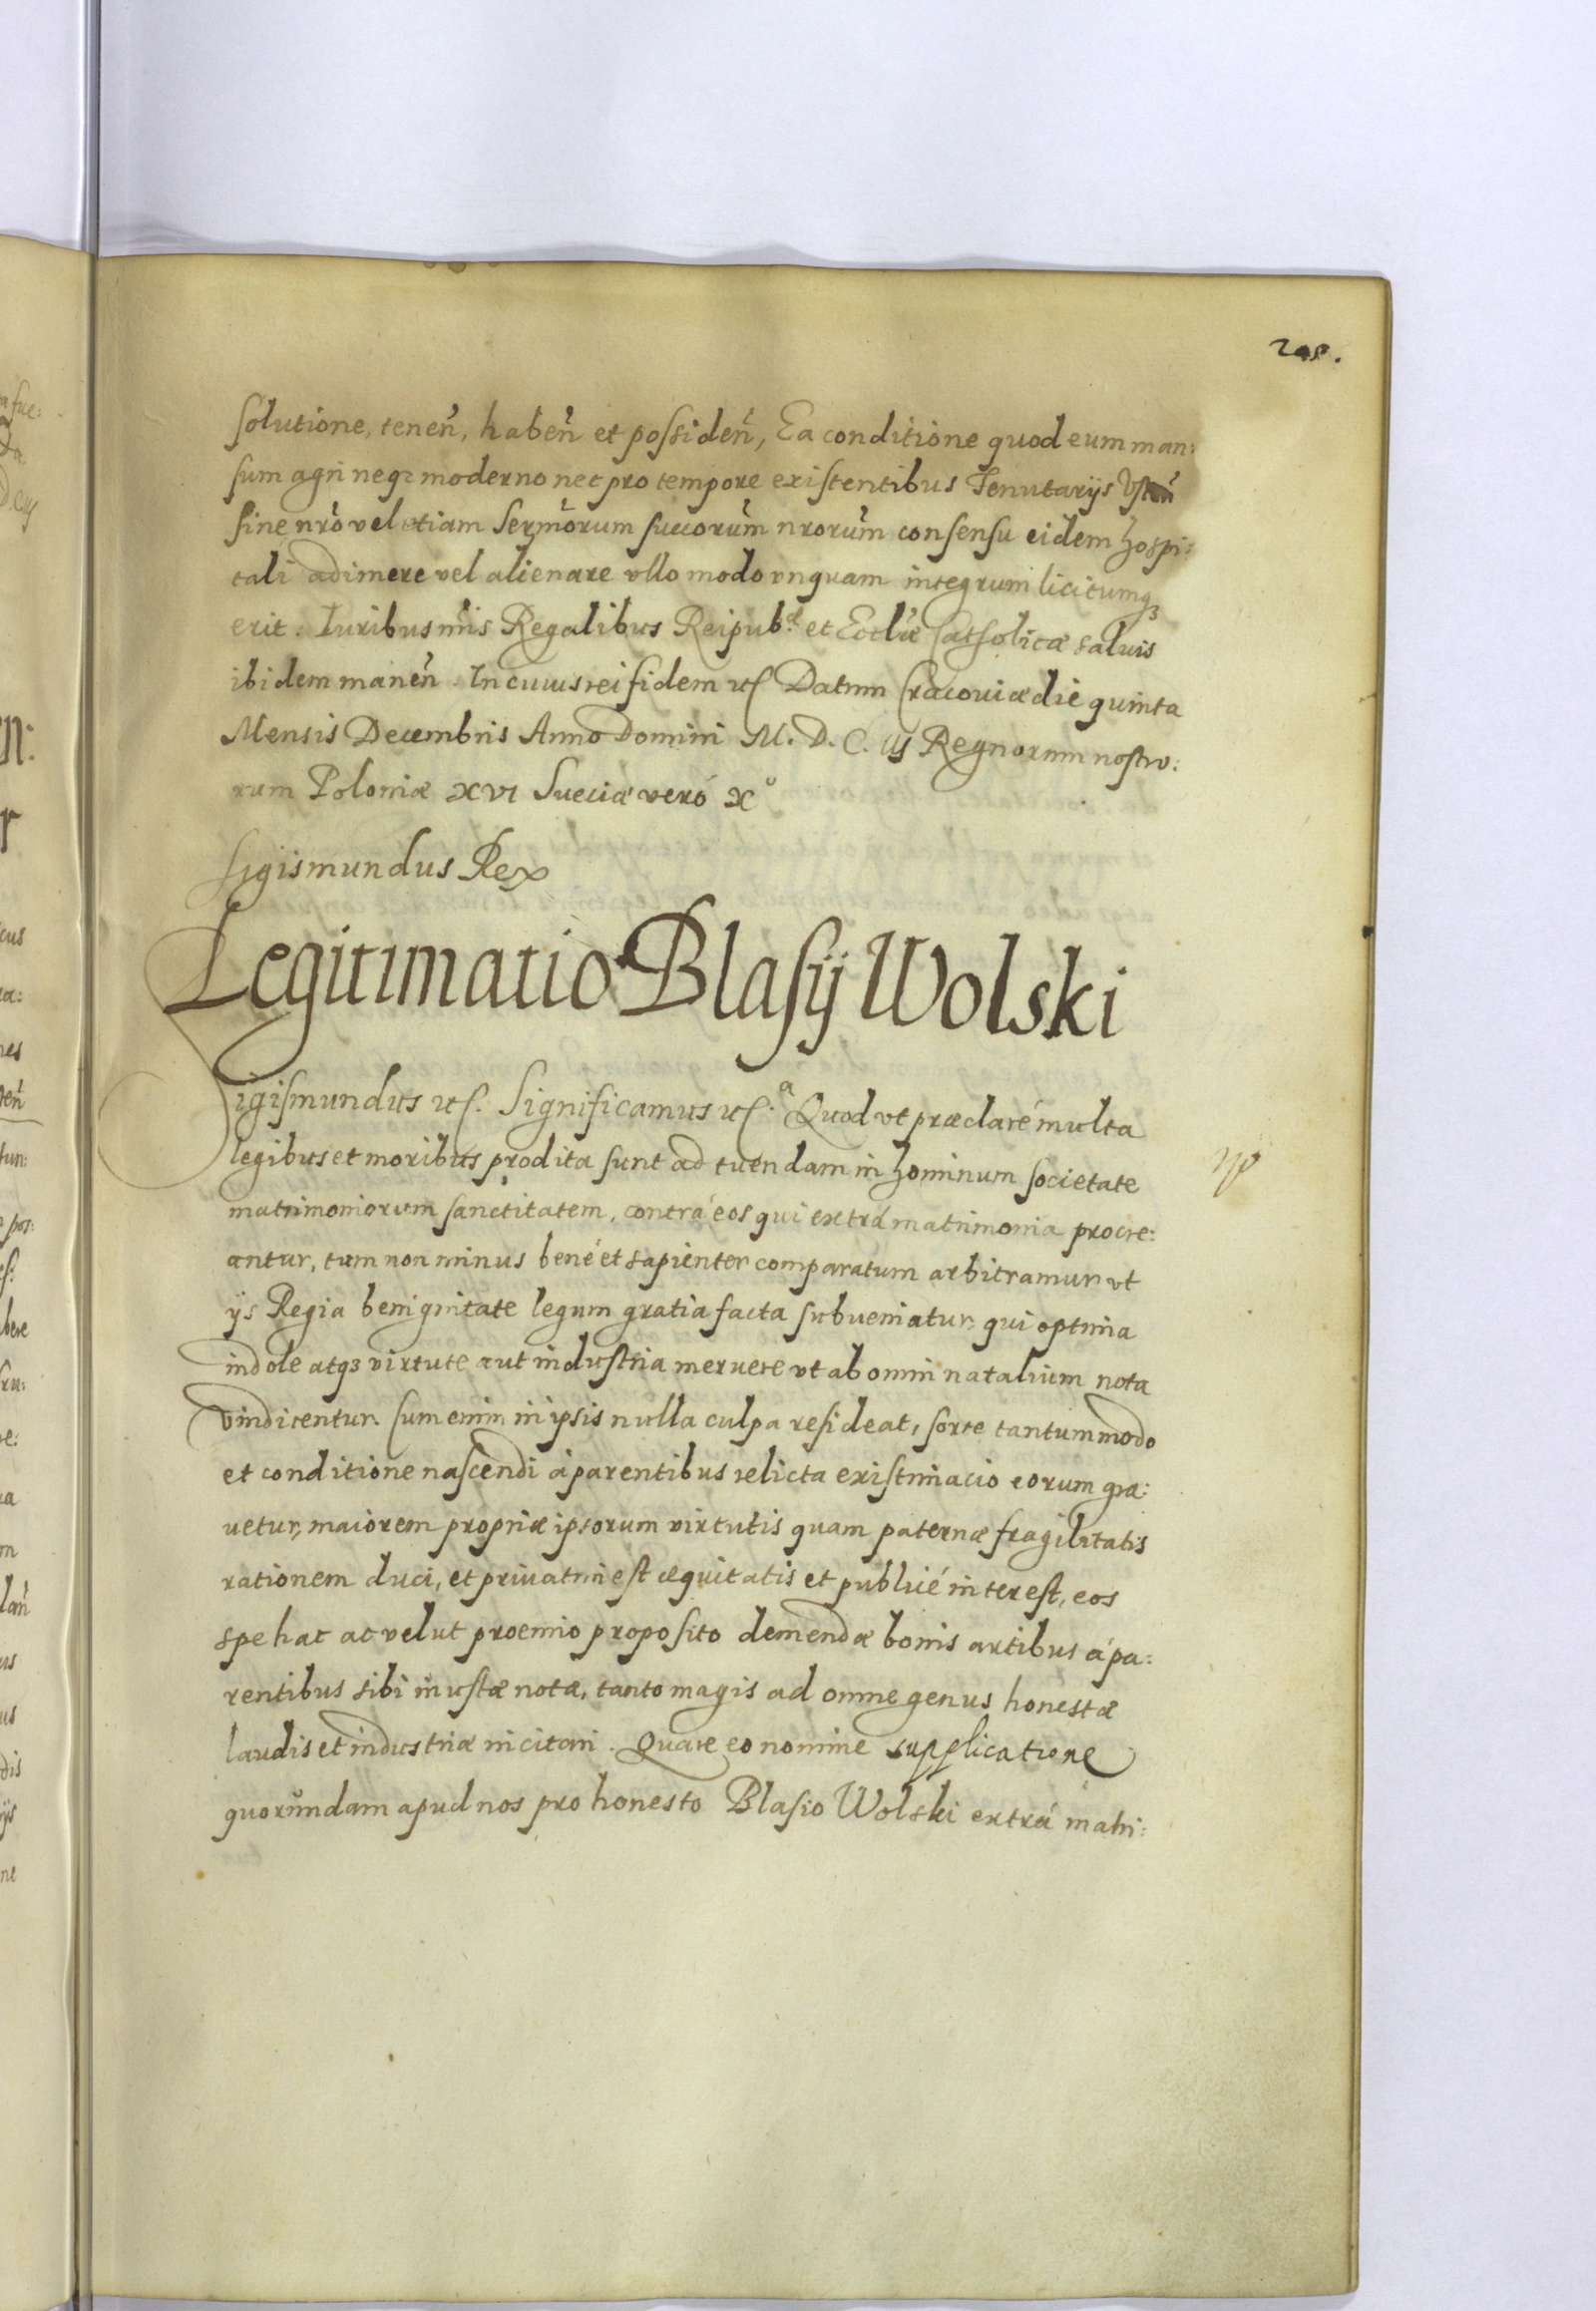 solutione, teneñ, habeñ et possideñ, Ea conditione quod eum man:
sum agri neqz moderno nec pro tempore existentibus Tenutarijs
sine nr̃o vel etiam Serm̃orum succorum̃ nrorum̃ consensu eidem Hospi:
tali adimere vel alienare vllo modo vnquam integrum licitumqz
erit. Iuribus nr̃is Regalibus Reipubᶜᵉ et Eccl̃iæ Catholicæ saluis
ibidem maneñ. In cuius rei fidem etc Datum Cracouiæ die quinta
Mensis Decembris Anno Domini M. D. C. iij Regnorum nostro:
rum Poloniæ XVI Sueciæ veró Xº
Sigismundus Rex
Legitimatio Blasij Wolski
Sigismundus etc. Significamus etc.ᵃ Quod vt præclaré multa
legibus et moribus prodita sunt ad tuendam in Hominum societate
matrimoniorum sanctitatem, contrá eos qui extrá matrimonia procre:
antur, tum non minus bené et sapienter comparatum arbitramur vt
ijs Regia benignitate legum gratia facta subueniatur qui optima
indole atqz virtute aut industria meruere vt ab omni natalium nota
vindicentur. Cum enim in ipsis nulla culpa resideat, sorte tantummodo
et conditione nascendi á parentibus relicta existimacio eorum gra:
uetur, maiorem propriæ ipsorum virtutis quam paternæ fragilitatis
rationem duci, et priuatim est æquitatis et publicé interest, eos
spe hac ac velut proemio proposito demendæ bonis artibus á pa:
rentibus sibi inustæ notæ, tanto magis ad omne genus honestæ
laudis et industriæ incitari. Quare eo nomine supplicatione
quorundam apud nos pro honesto Blasio Wolski extrá matri: